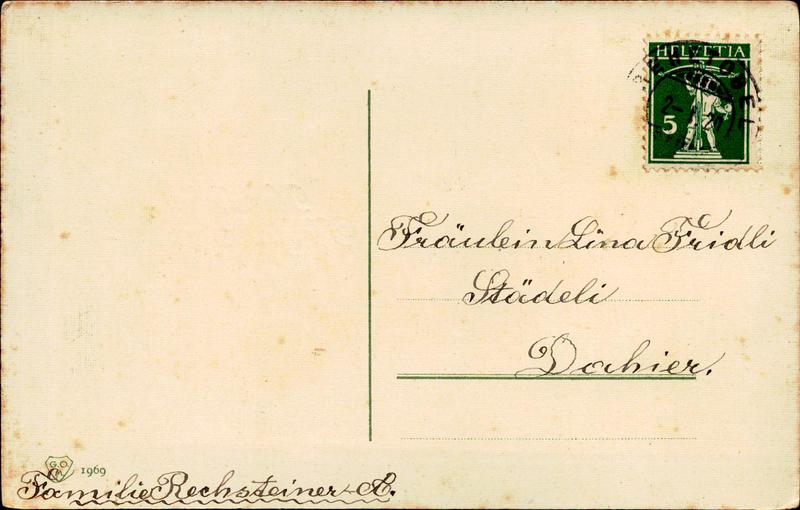 HELVETIA
REHETOBEL
5
Fräulein Lina Fridli
Städeli
Dahier.
G.O.M.
1969
Familie Rechsteiner-A.